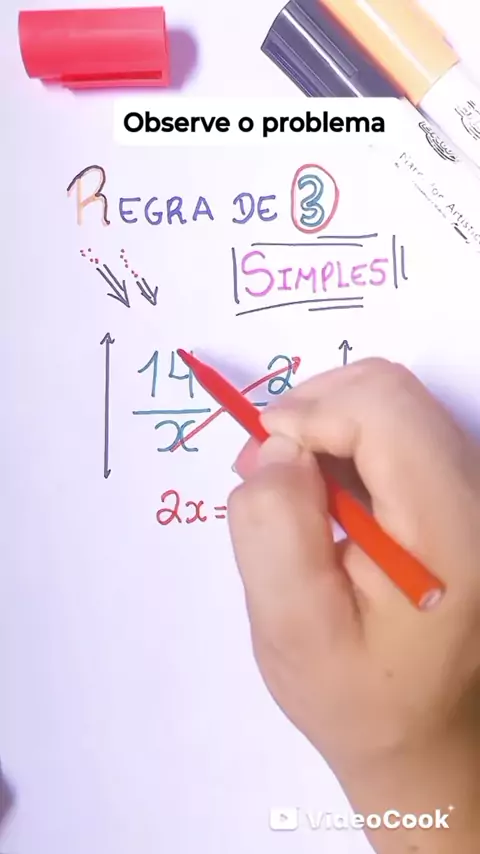 Observe o problema
REGRA DE 3
SIMPLES
14 2
x
2x=
VideoCook